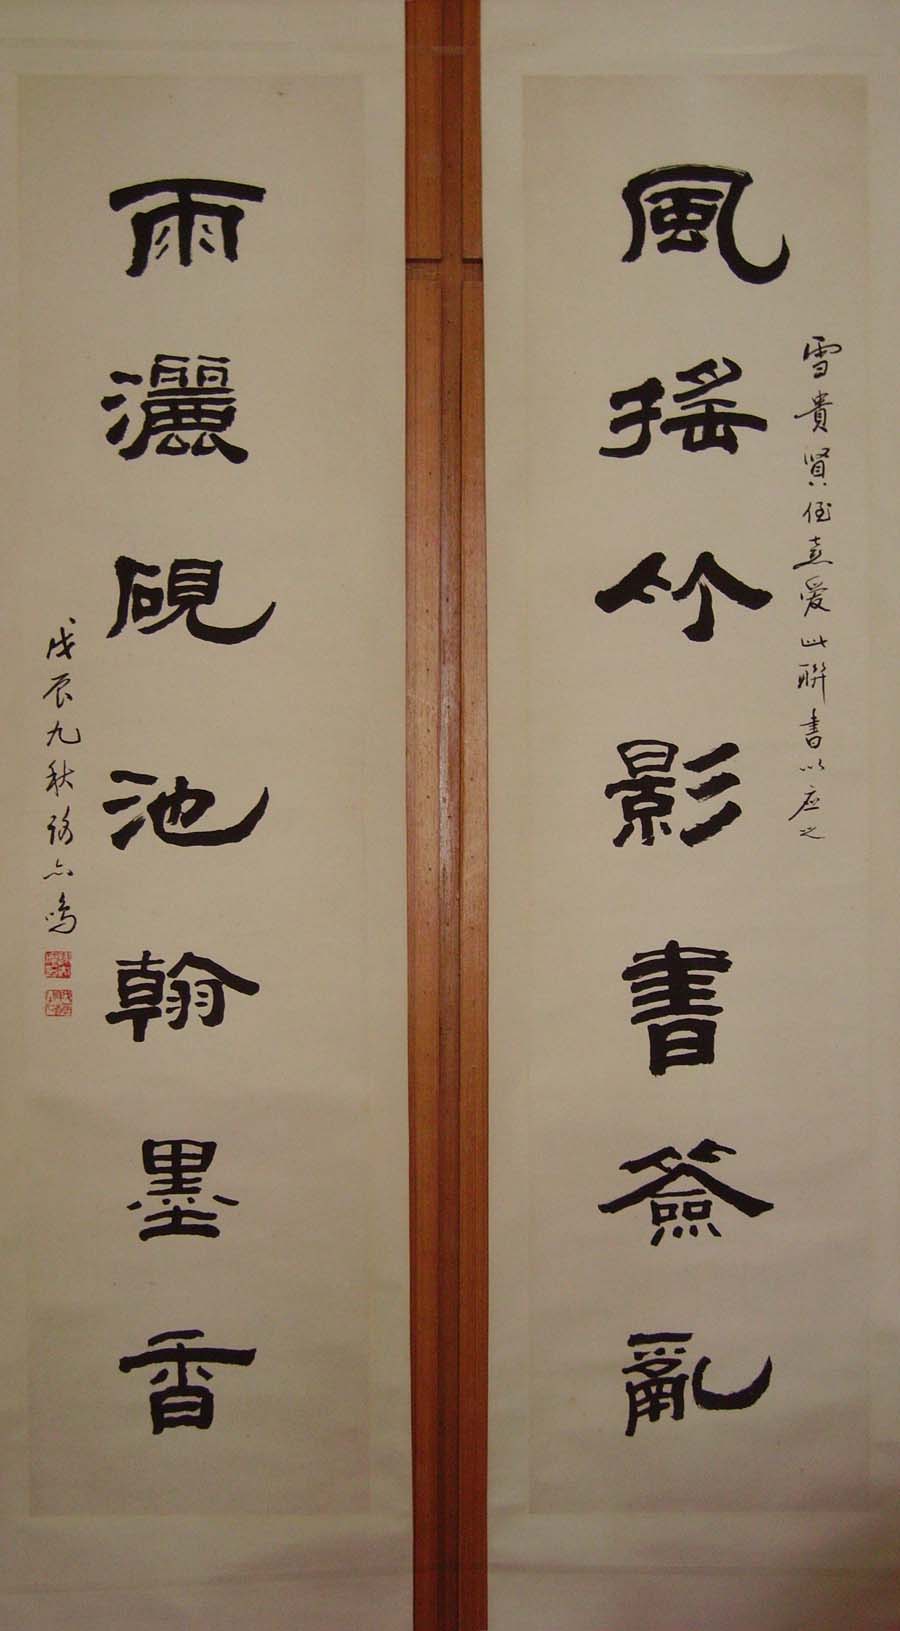 風搖竹影書簽亂
雪貴賢侄喜愛此聯書以应之
雨灑硯池翰墨香
戊辰九秋路亦鸣